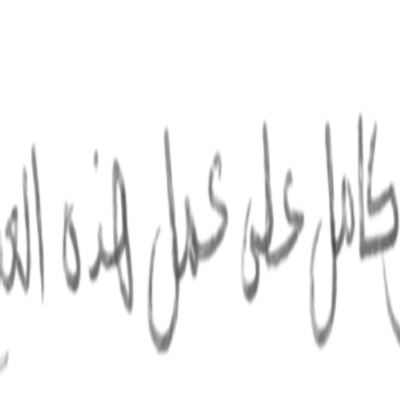 كامل على عمل هذه